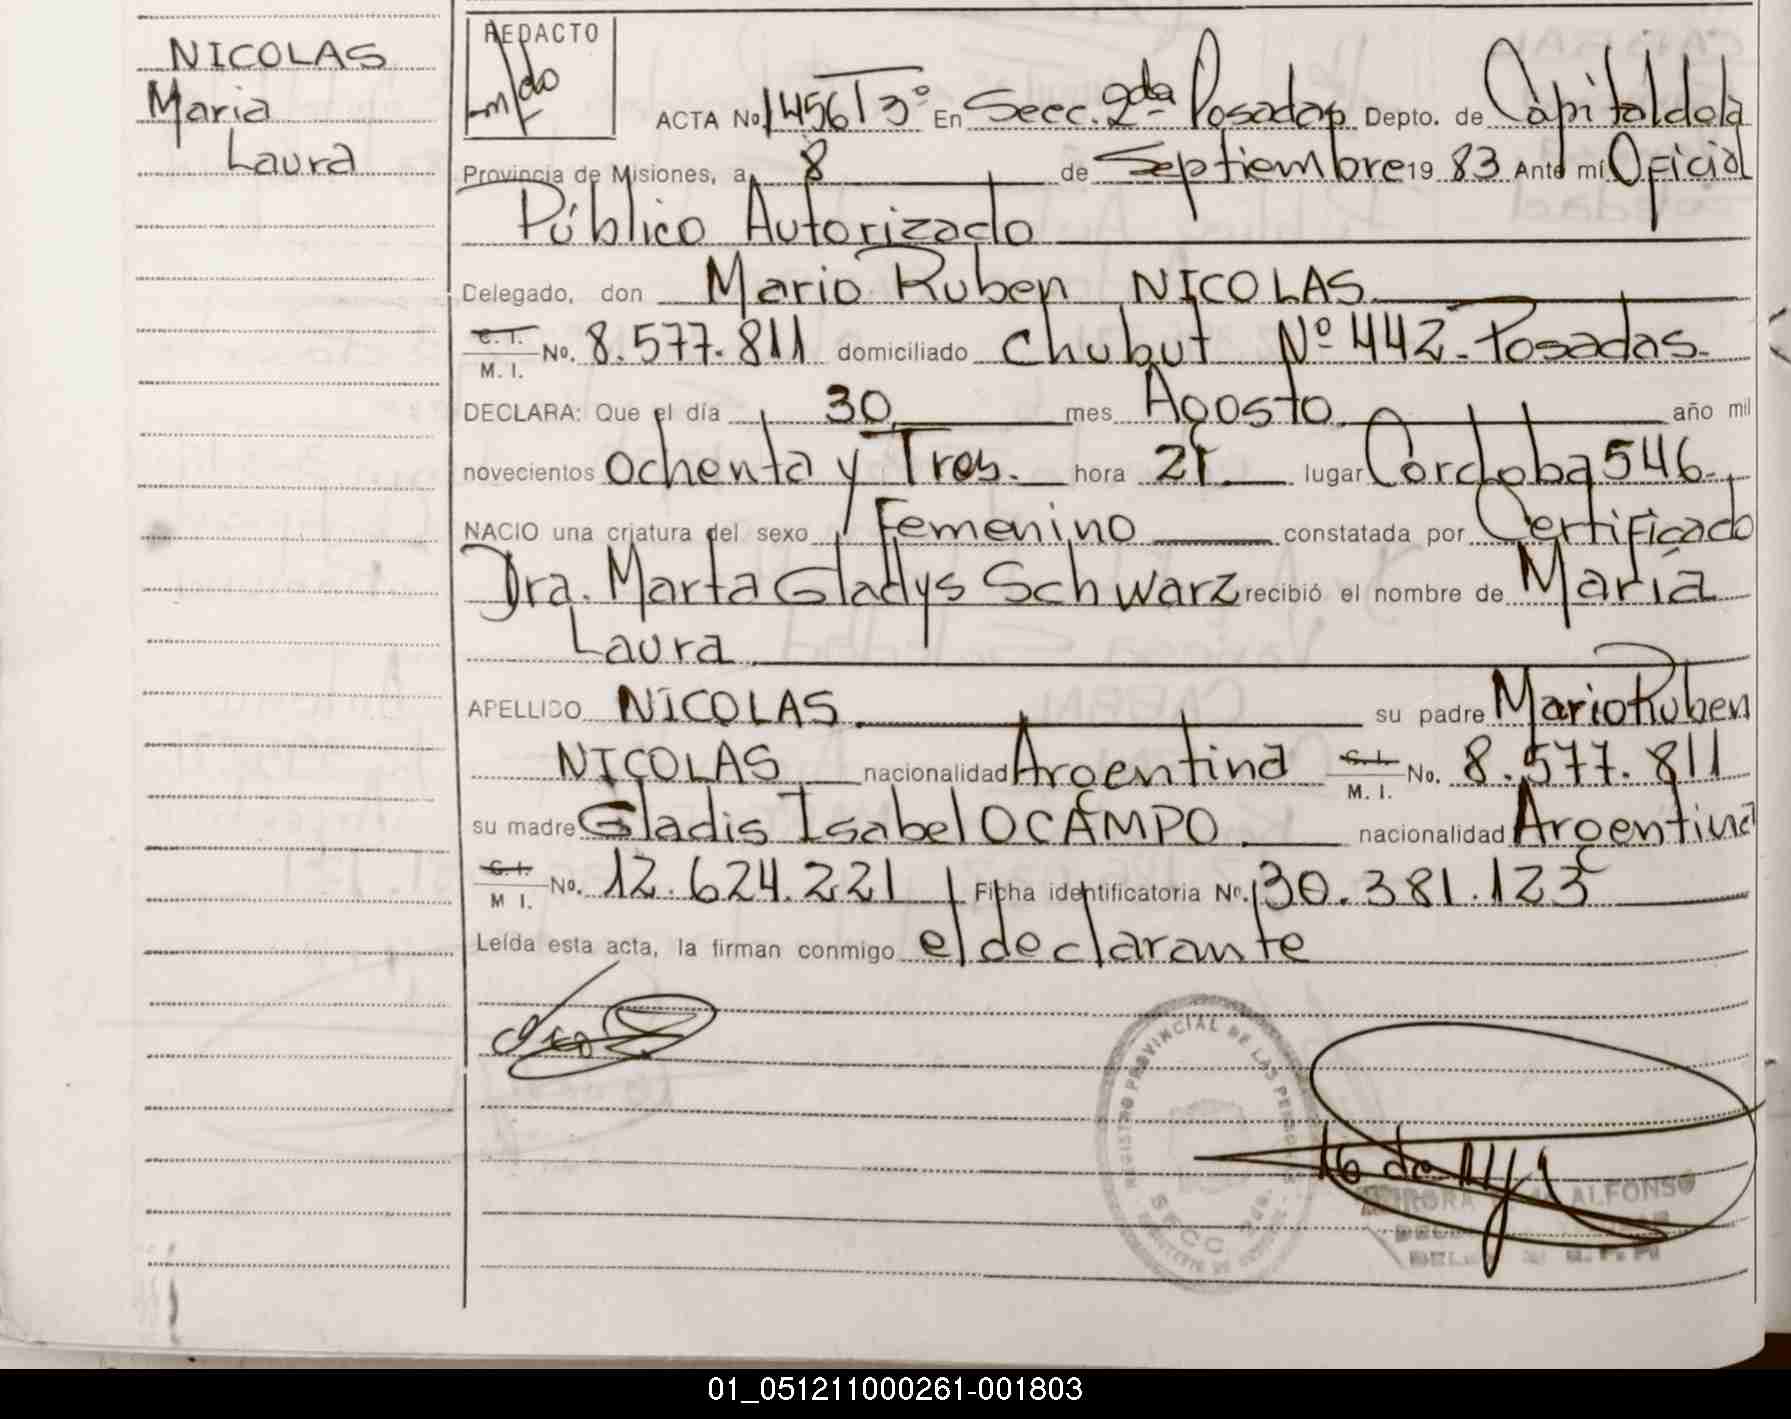 NICOLAS
Maria
Laura
REDACTO
ACTA No 1456 T 3º En Secc. 2da Posadas Depto. de Capital de la
Provincia de Misiones, a 8 de Septiembre 19 83 Ante mí Oficial
Público Autorizado
Delegado, don Mario Ruben NICOLAS
C. I.
M. I. No. 8.577.811 domiciliado Chubut Nº 442 - Posadas.
DECLARA: Que el día 30 mes Agosto año mil
novecientos ochenta y Tres. hora 21 lugar Cordoba 546.
NACIO una criatura del sexo Femenino constatada por Certificado
Dra. Marta Gladys Schwarz recibió el nombre de María
Laura
APELLIDO NICOLAS su padre Mario Ruben
NICOLAS nacionalidad Argentina C. I. M. I. No. 8.577.811
su madre Gladis Isabel OCAMPO nacionalidad Argentina
C. I.
M I. No. 12.624.221 Ficha identificatoria Nº. 30.381.123
Leída esta acta, la firman conmigo el declarante
REGISTRO PROVINCIAL DE LAS PERSONAS
SECC. 2da.
ALFONSO
01_051211000261-001803